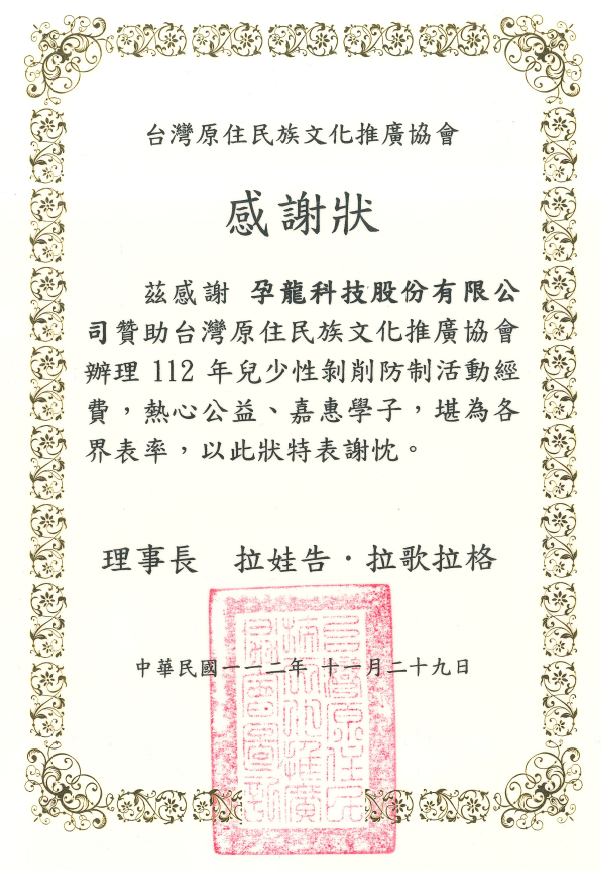 台灣原住民族文化推廣協會
感謝狀
茲感謝 孕龍科技股份有限公
司贊助台灣原住民族文化推廣協會
辦理 112 年兒少性剝削防制活動經
費，熱心公益、嘉惠學子，堪為各
界表率，以此狀特表謝忱。
理事長 拉娃告·拉歌拉格
中華民國一一二年 十一月二十九日